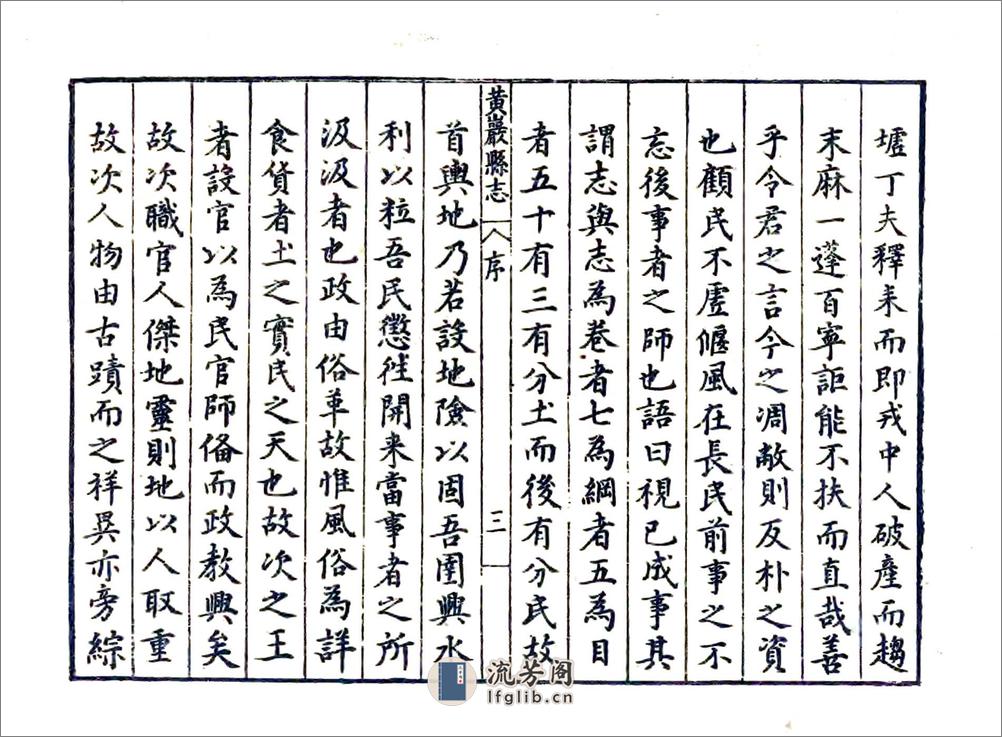 墟丁夫釋耒而即戎中人破產而趨
末麻一蓬百寧詎能不扶而直哉善
乎令君之言今之凋敝則反朴之資
也顧民不虛偃風在長民前事之不
忘後事者之師也語曰視已成事其
謂志與志為卷者七為綱者五為目
者五十有三有分土而後有分民故
黃巖縣志 序 三
首輿地乃若設地險以固吾圉興水
利以粒吾民懲徃開来當事者之所
汲汲者也政由俗革故惟風俗為詳
食貨者土之實民之天也故次之王
者設官以為民官師俻而政教興矣
故次職官人傑地靈則地以人取重
故次人物由古蹟而之祥異亦旁綜
流芳阁
lfglib.cn